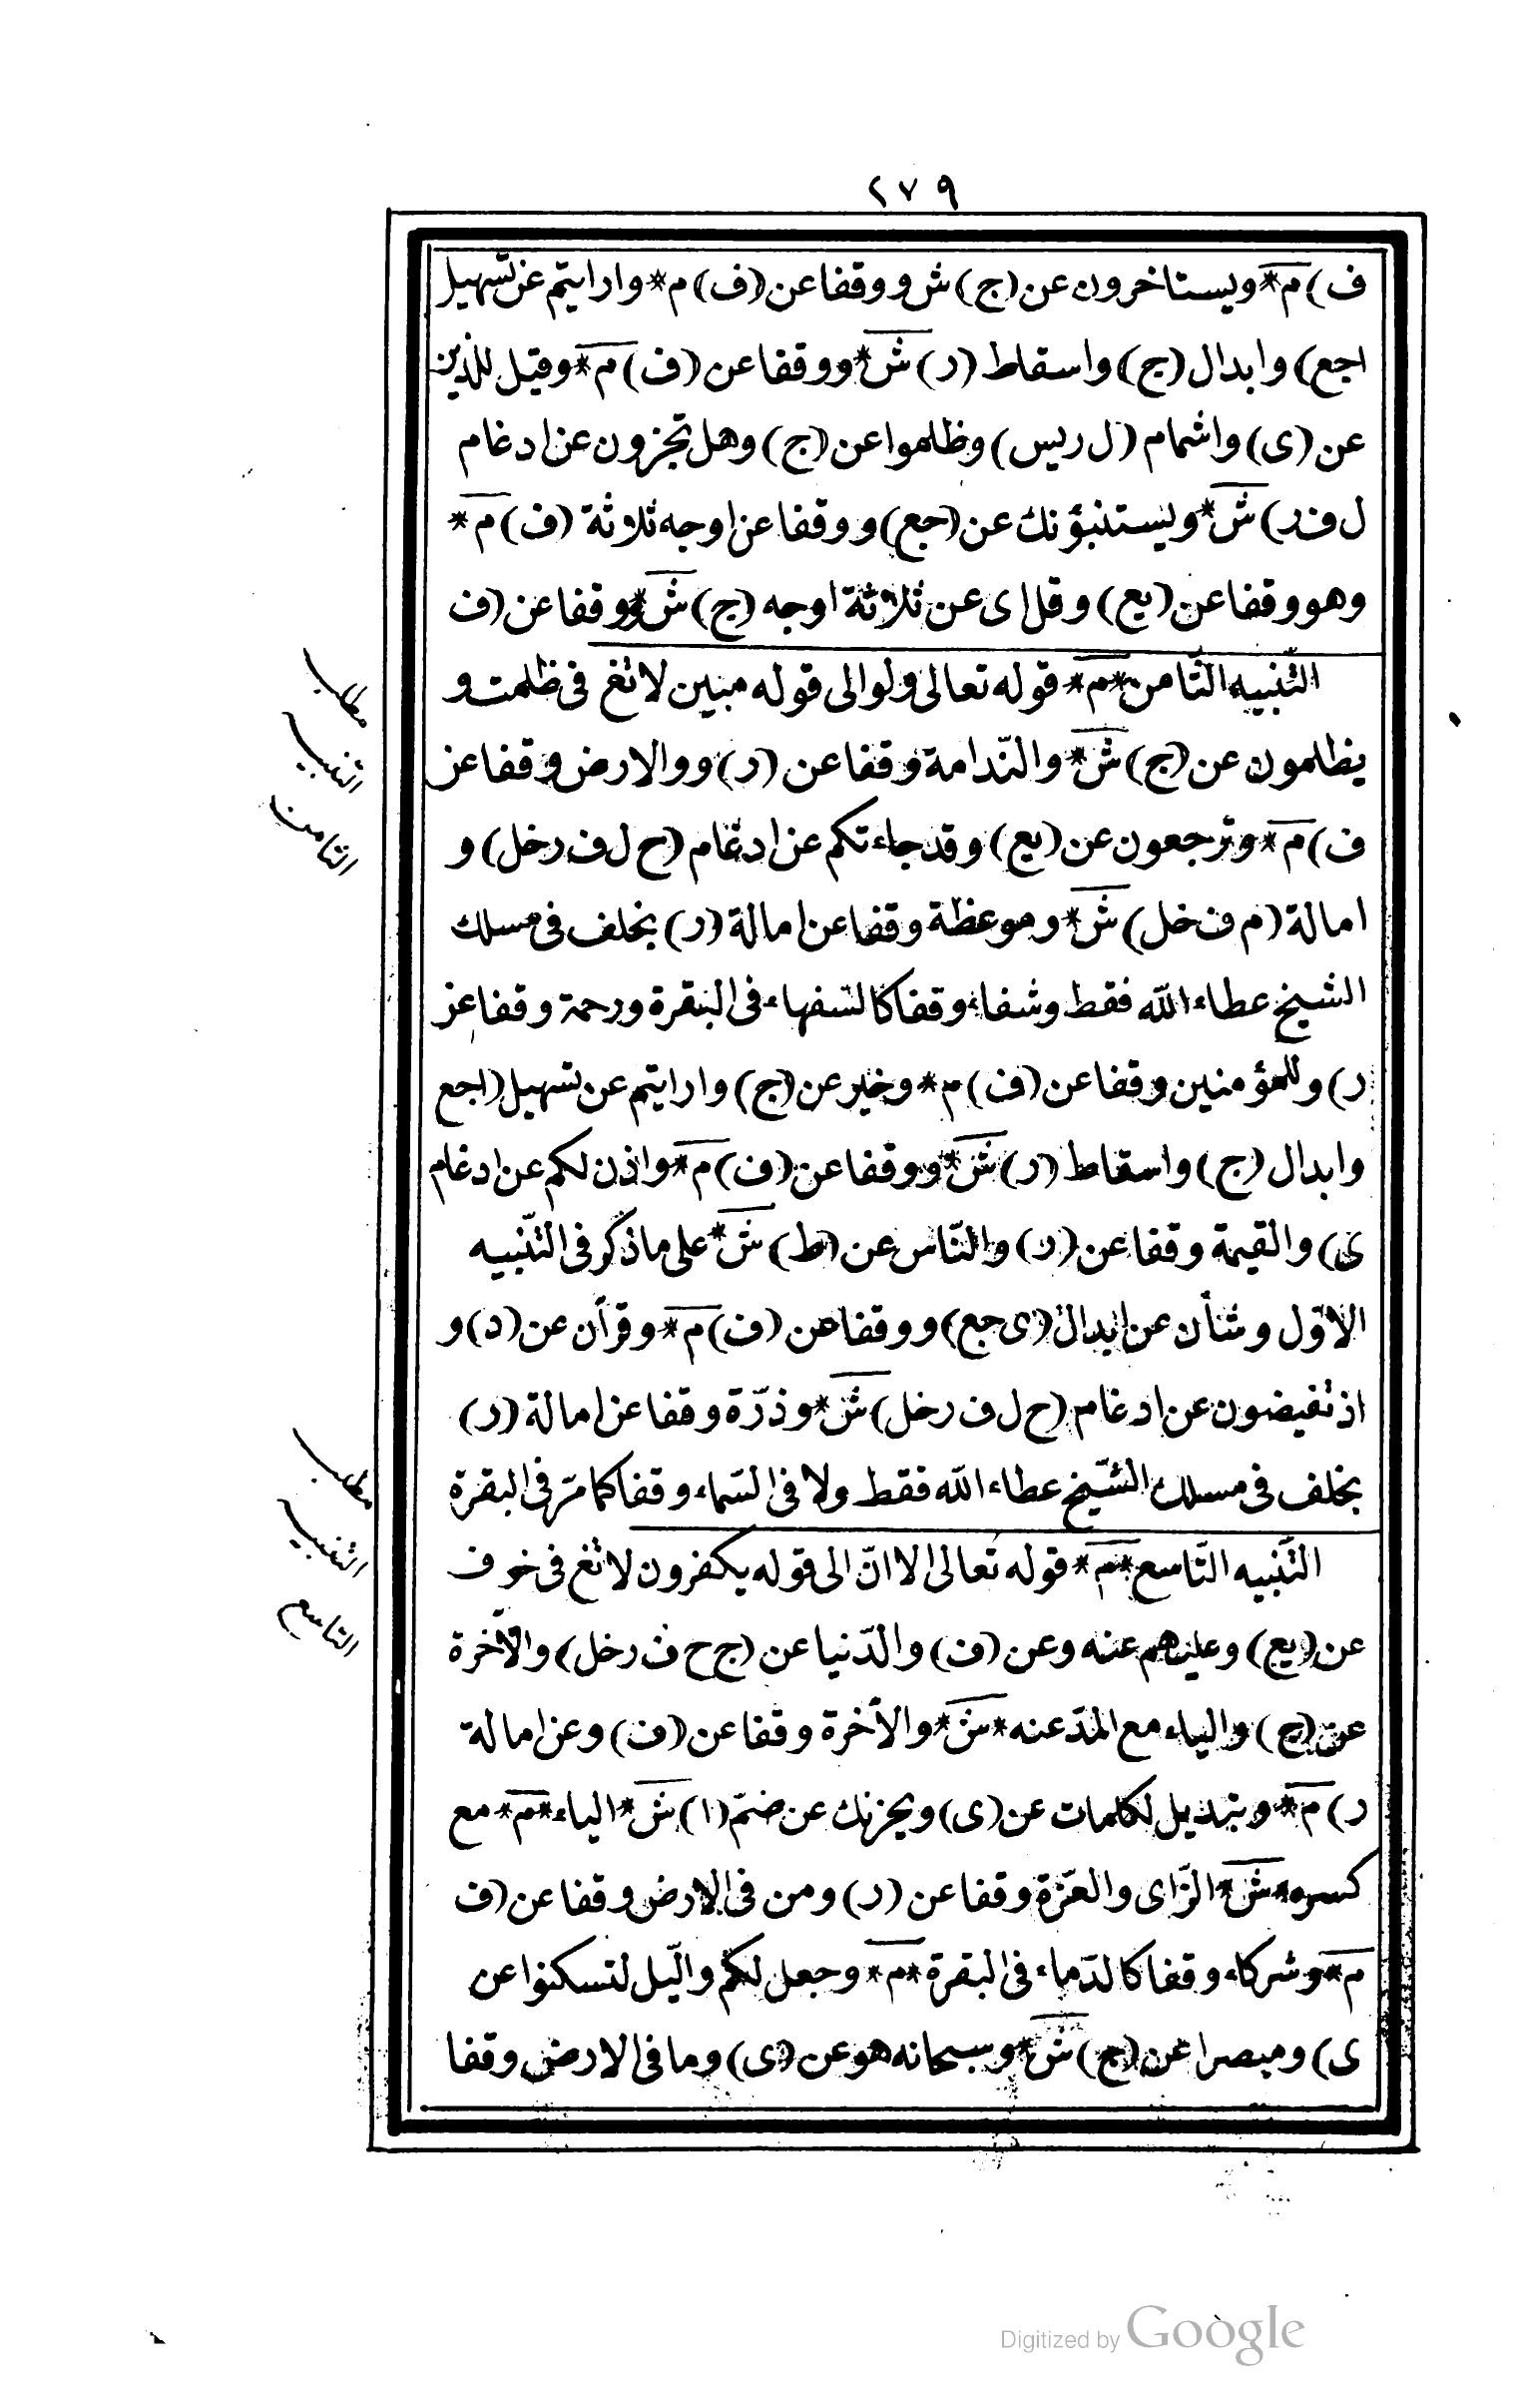 ٢٧٩
ف) م* ويستاخرون عن (ج) ش ووقفا عن (ف) م* وارايتم عن تسهيل
اجع) وابدال (ج) واسقاط (ر) ش* ووقفا عن (ف) م* وقيل للذين
عن (ى) واشمام (ل ريس) وظلموا عن (ج) وهل تجزون عن ادغام
ل ف ر) ش* ويستنبؤنك عن (جع) ووقفا عن اوجه ثلاثة (ف) م*
وهو وقفا عن (يع) وقل اى عن ثلاثة اوجه (ج) ش* ووقفا عن (ف
التّنبيه الثّامن *م* قوله تعالى ولو الى قوله مبين لا تغ فى ظلمت و
يظلمون عن (ج) ش* والنّدامة وقفا عن (ر) ووالارض وقفا عن
ف) م* وترجعون عن (يع) وقد جاءتكم عن ادغام (ح ل ف رخل) و
امالة (م ف خل) ش* وموعظة وقفا عن امالة (ر) بخلف فى مسلك
الشيخ عطاء اللّه فقط وشفاء وقفا كالسّفهاء فى البقرة ورحمة وقفا عن
ر) وللمؤمنين وقفا عن (ف) م* وخير عن (ج) وارايتم عن تسهيل (اجع
وابدال (ج) واسقاط (ر) ش* ووقفا عن (ف) م* واذن لكم عن ادغام
ى) والقيمة وقفا عن (ر) والنّاس عن (ط) ش* على ما ذكر فى التّنبيه
الاوّل وشأن عن ابدال (ى جع) ووقفا عن (ف) م* وقرآن عن (د) و
اذ تفيضون عن ادغام (ح ل ف رخل) ش* وذرّة وقفا عن امالة (ر)
بخلف فى مسلك الشّيخ عطاء اللّه فقط ولا فى السّماء وقفا كما مرّ فى البقرة
التّنبيه التّاسع *م* قوله تعالى الا انّ الى قوله يكفرون لا تغ فى خوف
عن (يع) وعليهم عنه وعن (ف) والدّنيا عن (ج ح ف رخل) والآخرة
عن (ج) والياء مع المدّ عنه *ش* والآخرة وقفا عن (ف) وعن امالة
ر) م* وتبديل لكلمات عن (ى) ويحزنك عن ضمّ (ا) ش* الياء *م* مع
كسره *ش* الزّاى والعزّة وقفا عن (ر) ومن فى الارض وقفا عن (ف
م* وشركاء وقفا كالدّماء فى البقرة *م* وجعل لكم والّيل لتسكنوا عن
ى) ومبصرا عن (ج) ش* وسبحانه هو عن (ى) وما فى الارض وقفا
مطلب
التنبيه
الثامن
مطلب
التنبيه
التاسع
Digitized by Google